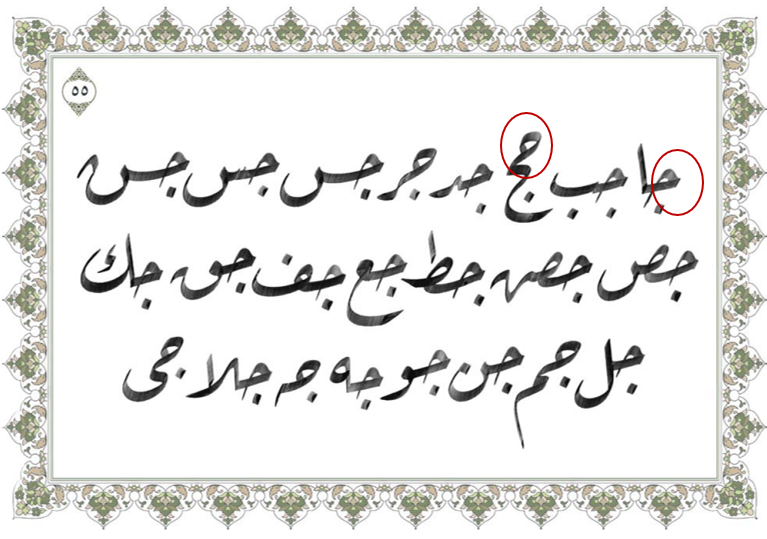 ٥٥
جا جب جج جد جر جس جس جس
جص جص جط جع جف جق جك
جل جم جن جو جه جه جلا جى